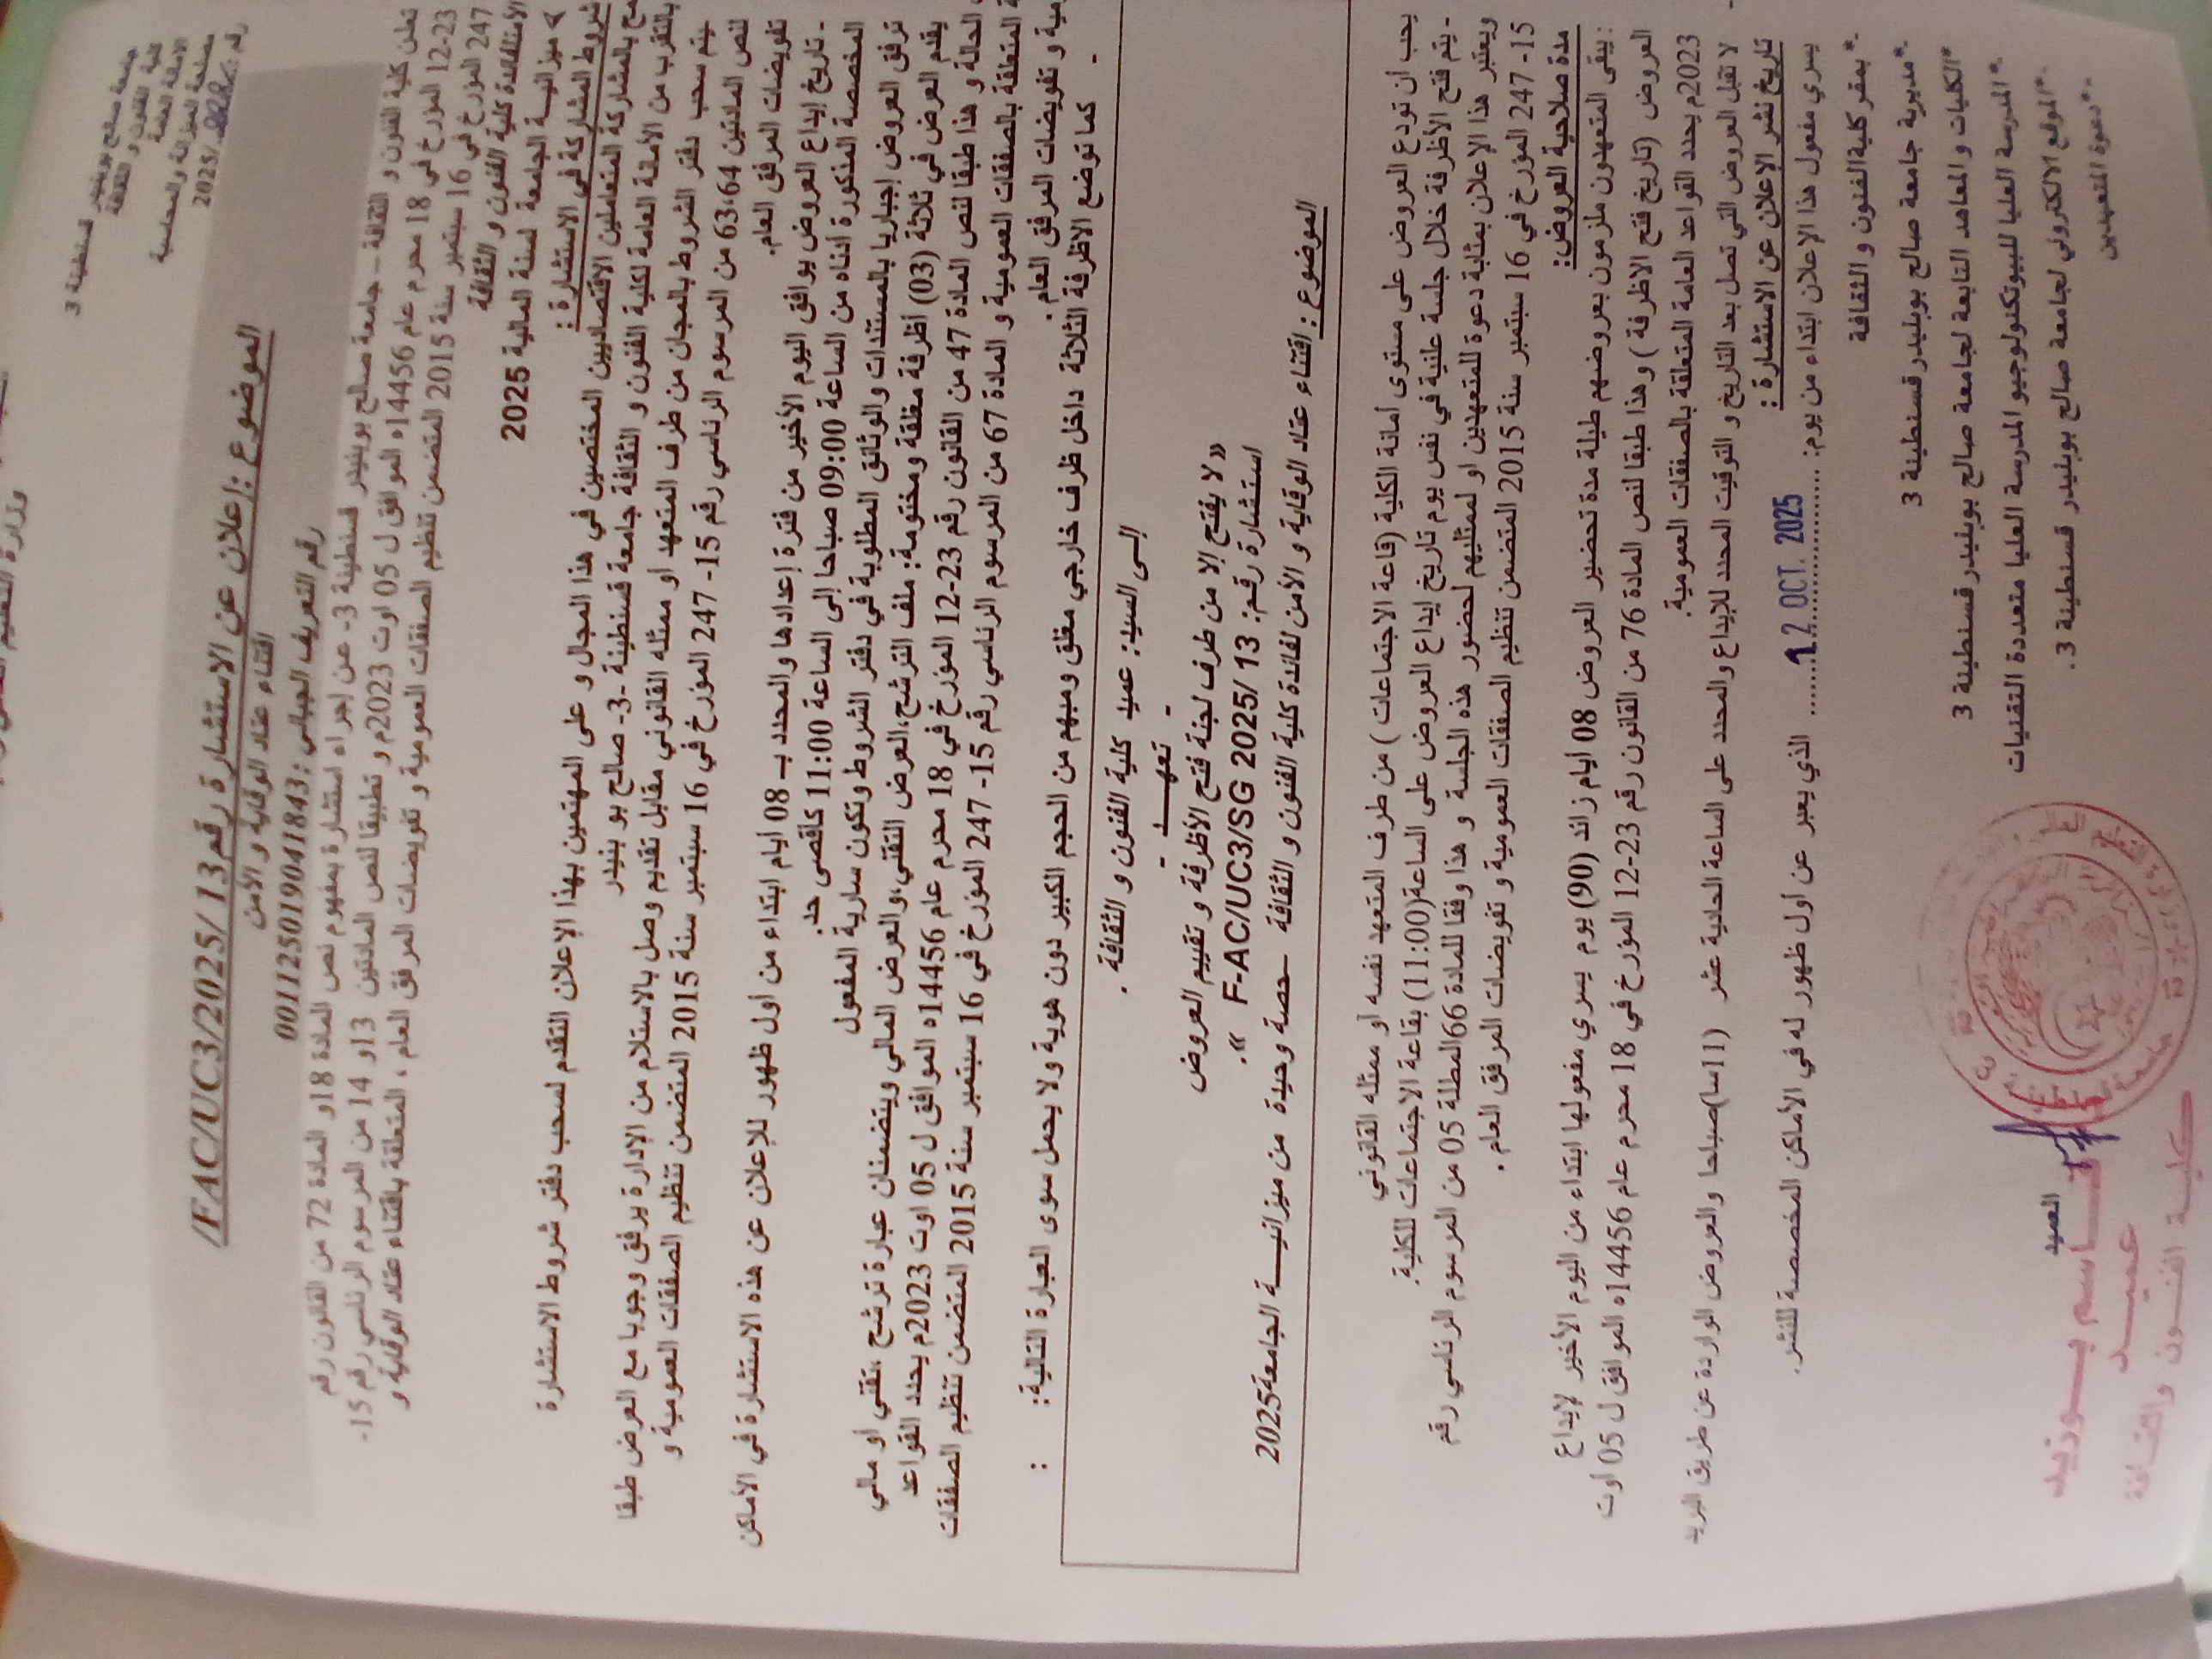 وزارة التعليم
جامعة صالح بوبنيدر قسنطينة 3
كلية الفنون و الثقافة
الأمانة العامة
مصلحة الميزانية والمحاسبة
رقم: /2025
الموضوع :إعلان عن الاستشارة رقم13 /2025/FAC/UC3/
اقتناء عتاد الوقاية و الأمن
رقم التعريف الجبائي :001125019041843
تعلن كلية الفنون و الثقافة – جامعة صالح بوبنيدر قسنطينة 3- عن إجراء استشارة بمفهوم نص المادة 18و المادة 72 من القانون رقم
12-23 المؤرخ في 18 محرم عام 14456ه الموافق ل 05 اوت 2023م و تطبيقا لنص المادتين 13و 14 من المرسوم الرئاسي رقم 15-
247 المؤرخ في 16 سبتمبر سنة 2015 المتضمن تنظيم الصفقات العمومية و تفويضات المرفق العام ، المتعلقة باقتناء عتاد الوقاية و
الأمنلفائدة كلية الفنون و الثقافة
➢ ميزانية الجامعة لسنة المالية 2025
شروط المشاركة في الاستشارة :
بالمشاركة المتعاملين الاقتصاديين المختصين في هذا المجال و على المهتمين بهذا الإعلان التقدم لسحب دفتر شروط الاستشارة
بالتقرب من الأمانة العامة لكلية الفنون و الثقافة جامعة قسنطينة -3- صالح بو بنيدر
يتم سحب دفتر الشروط بالمجان من طرف المتعهد او ممثله القانوني مقابل تقديم وصل بالاستلام من الإدارة يرفق وجوبا مع العرض طبقا
لنص المادتين 63،64 من المرسوم الرئاسي رقم 15- 247 المؤرخ في 16 سبتمبر سنة 2015 المتضمن تنظيم الصفقات العمومية و
تفويضات المرفق العام.
- تاريخ إيداع العروض يوافق اليوم الأخير من فترة إعدادها والمحدد بـ 08 أيام ابتداء من أول ظهور للإعلان عن هذه الاستشارة في الأماكن
المخصصة المذكورة أدناه من الساعة 09:00 صباحا إلى الساعة 11:00 كأقصى حد.
ترفق العروض إجباريا بالمستندات والوثائق المطلوبة في دفتر الشروط وتكون سارية المفعول
يقدم العرض في ثلاثة (03) أظرفة مغلقة ومختومة: ملف الترشح،العرض التقني،والعرض المالي ويتضمنان عبارة ترشح ،تقني أو مالي
الحالة و هذا طبقا لنص المادة 47 من القانون رقم 23-12 المؤرخ في 18 محرم عام 14456ه الموافق ل 05 اوت 2023م يحدد القواعد
المتعلقة بالصفقات العمومية و المادة 67 من المرسوم الرئاسي رقم 15- 247 المؤرخ في 16 سبتمبر سنة 2015 المتضمن تنظيم الصفقات
و تفويضات المرفق العام .
- كما توضع الاظرفة الثلاثة داخل ظرف خارجي مغلق ومبهم من الحجم الكبير دون هوية ولا يحمل سوى العبارة التالية: :
إلى السيد: عميد كلية الفنون و الثقافة .
- تعهـــد -
« لا يفتح إلا من طرف لجنة فتح الأظرفة و تقييم العروض
استشارة رقم: 13 /F-AC/UC3/SG 2025 » .
الموضوع : اقتناء عتاد الوقاية و الأمن لفائدة كلية الفنون و الثقافة –حصة وحيدة من ميزانيـــة الجامعة2025
يجب أن تودع العروض على مستوى أمانة الكلية (قاعة الاجتماعات ) من طرف المتعهد نفسه أو ممثله القانوني
- يتم فتح الأظرفة خلال جلسة علنية في نفس يوم تاريخ إيداع العروض على الساعة(11:00) بقاعة الاجتماعات للكلية.
ويعتبر هذا الإعلان بمثابة دعوة للمتعهدين او لممثليهم لحضور هذه الجلسة و هذا وفقا للمادة 66المطلة 05 من المرسوم الرئاسي رقم
15- 247 المؤرخ في 16 سبتمبر سنة 2015 المتضمن تنظيم الصفقات العمومية و تفويضات المرفق العام .
مدة صلاحية العروض:
: يبقى المتعهدون ملزمون بعروضهم طيلة مدة تحضير العروض 08 أيام زائد (90) يوم يسري مفعولها ابتداء من اليوم الأخير لإيداع
العروض (تاريخ فتح الاظرفة ) وهذا طبقا لنص المادة 76 من القانون رقم 23-12 المؤرخ في 18 محرم عام 14456ه الموافق ل 05 اوت
2023م يحدد القواعد العامة المتعلقة بالصفقات العمومية.
- لا تقبل العروض التي تصل بعد التاريخ و التوقيت المحدد للإيداع والمحدد على الساعة الحادية عشر (11سا)صباحا والعروض الواردة عن طريق البريد
تاريخ نشر الإعلان عن الاستشارة :
يسري مفعول هذا الإعلان ابتداء من يوم: ........12 OCT. 2025........ الذي يعبر عن أول ظهور له في الأماكن المخصصة للنشر.
*بمقر كلية الفنون و الثقافة
*مديرية جامعة صالح بوبنيدر قسنطينة 3
*الكليات و المعاهد التابعة لجامعة صالح بوبنيدر قسنطينة 3
*المدرسة العليا للبيوتكنولوجيو المدرسة العليا متعددة التقنيات
*الموقع الالكتروني لجامعة صالح بوبنيدر قسنطينة 3.
*دعوة المتعهدين
العميد
قـــاسم بـــوزيد
عميـــد
كليـــة الفنـــون والثقـــافة